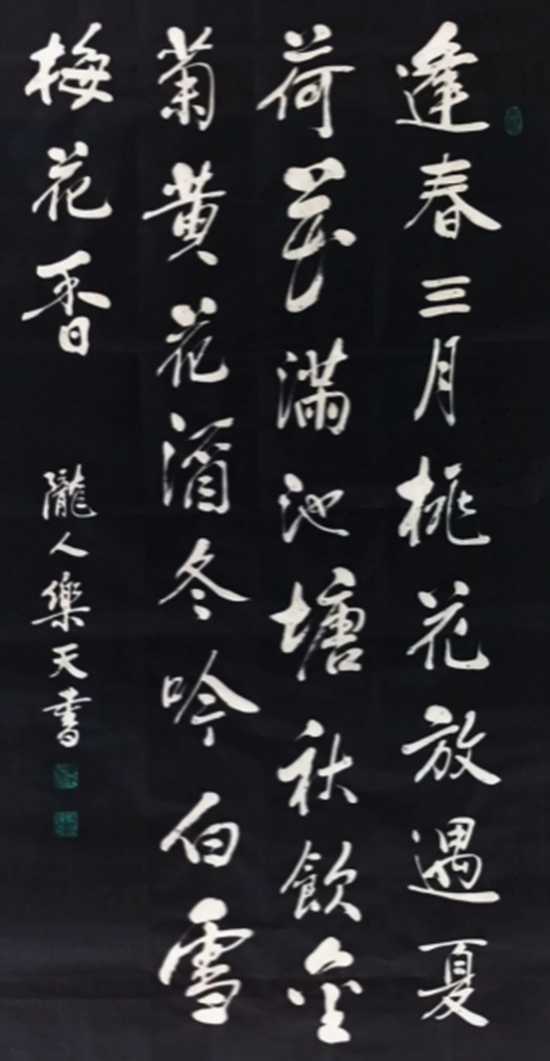 逢春三月桃花放遇夏
荷花滿池塘秋飲金
菊黄花酒冬吟白雪
梅花香
隴人樂天書